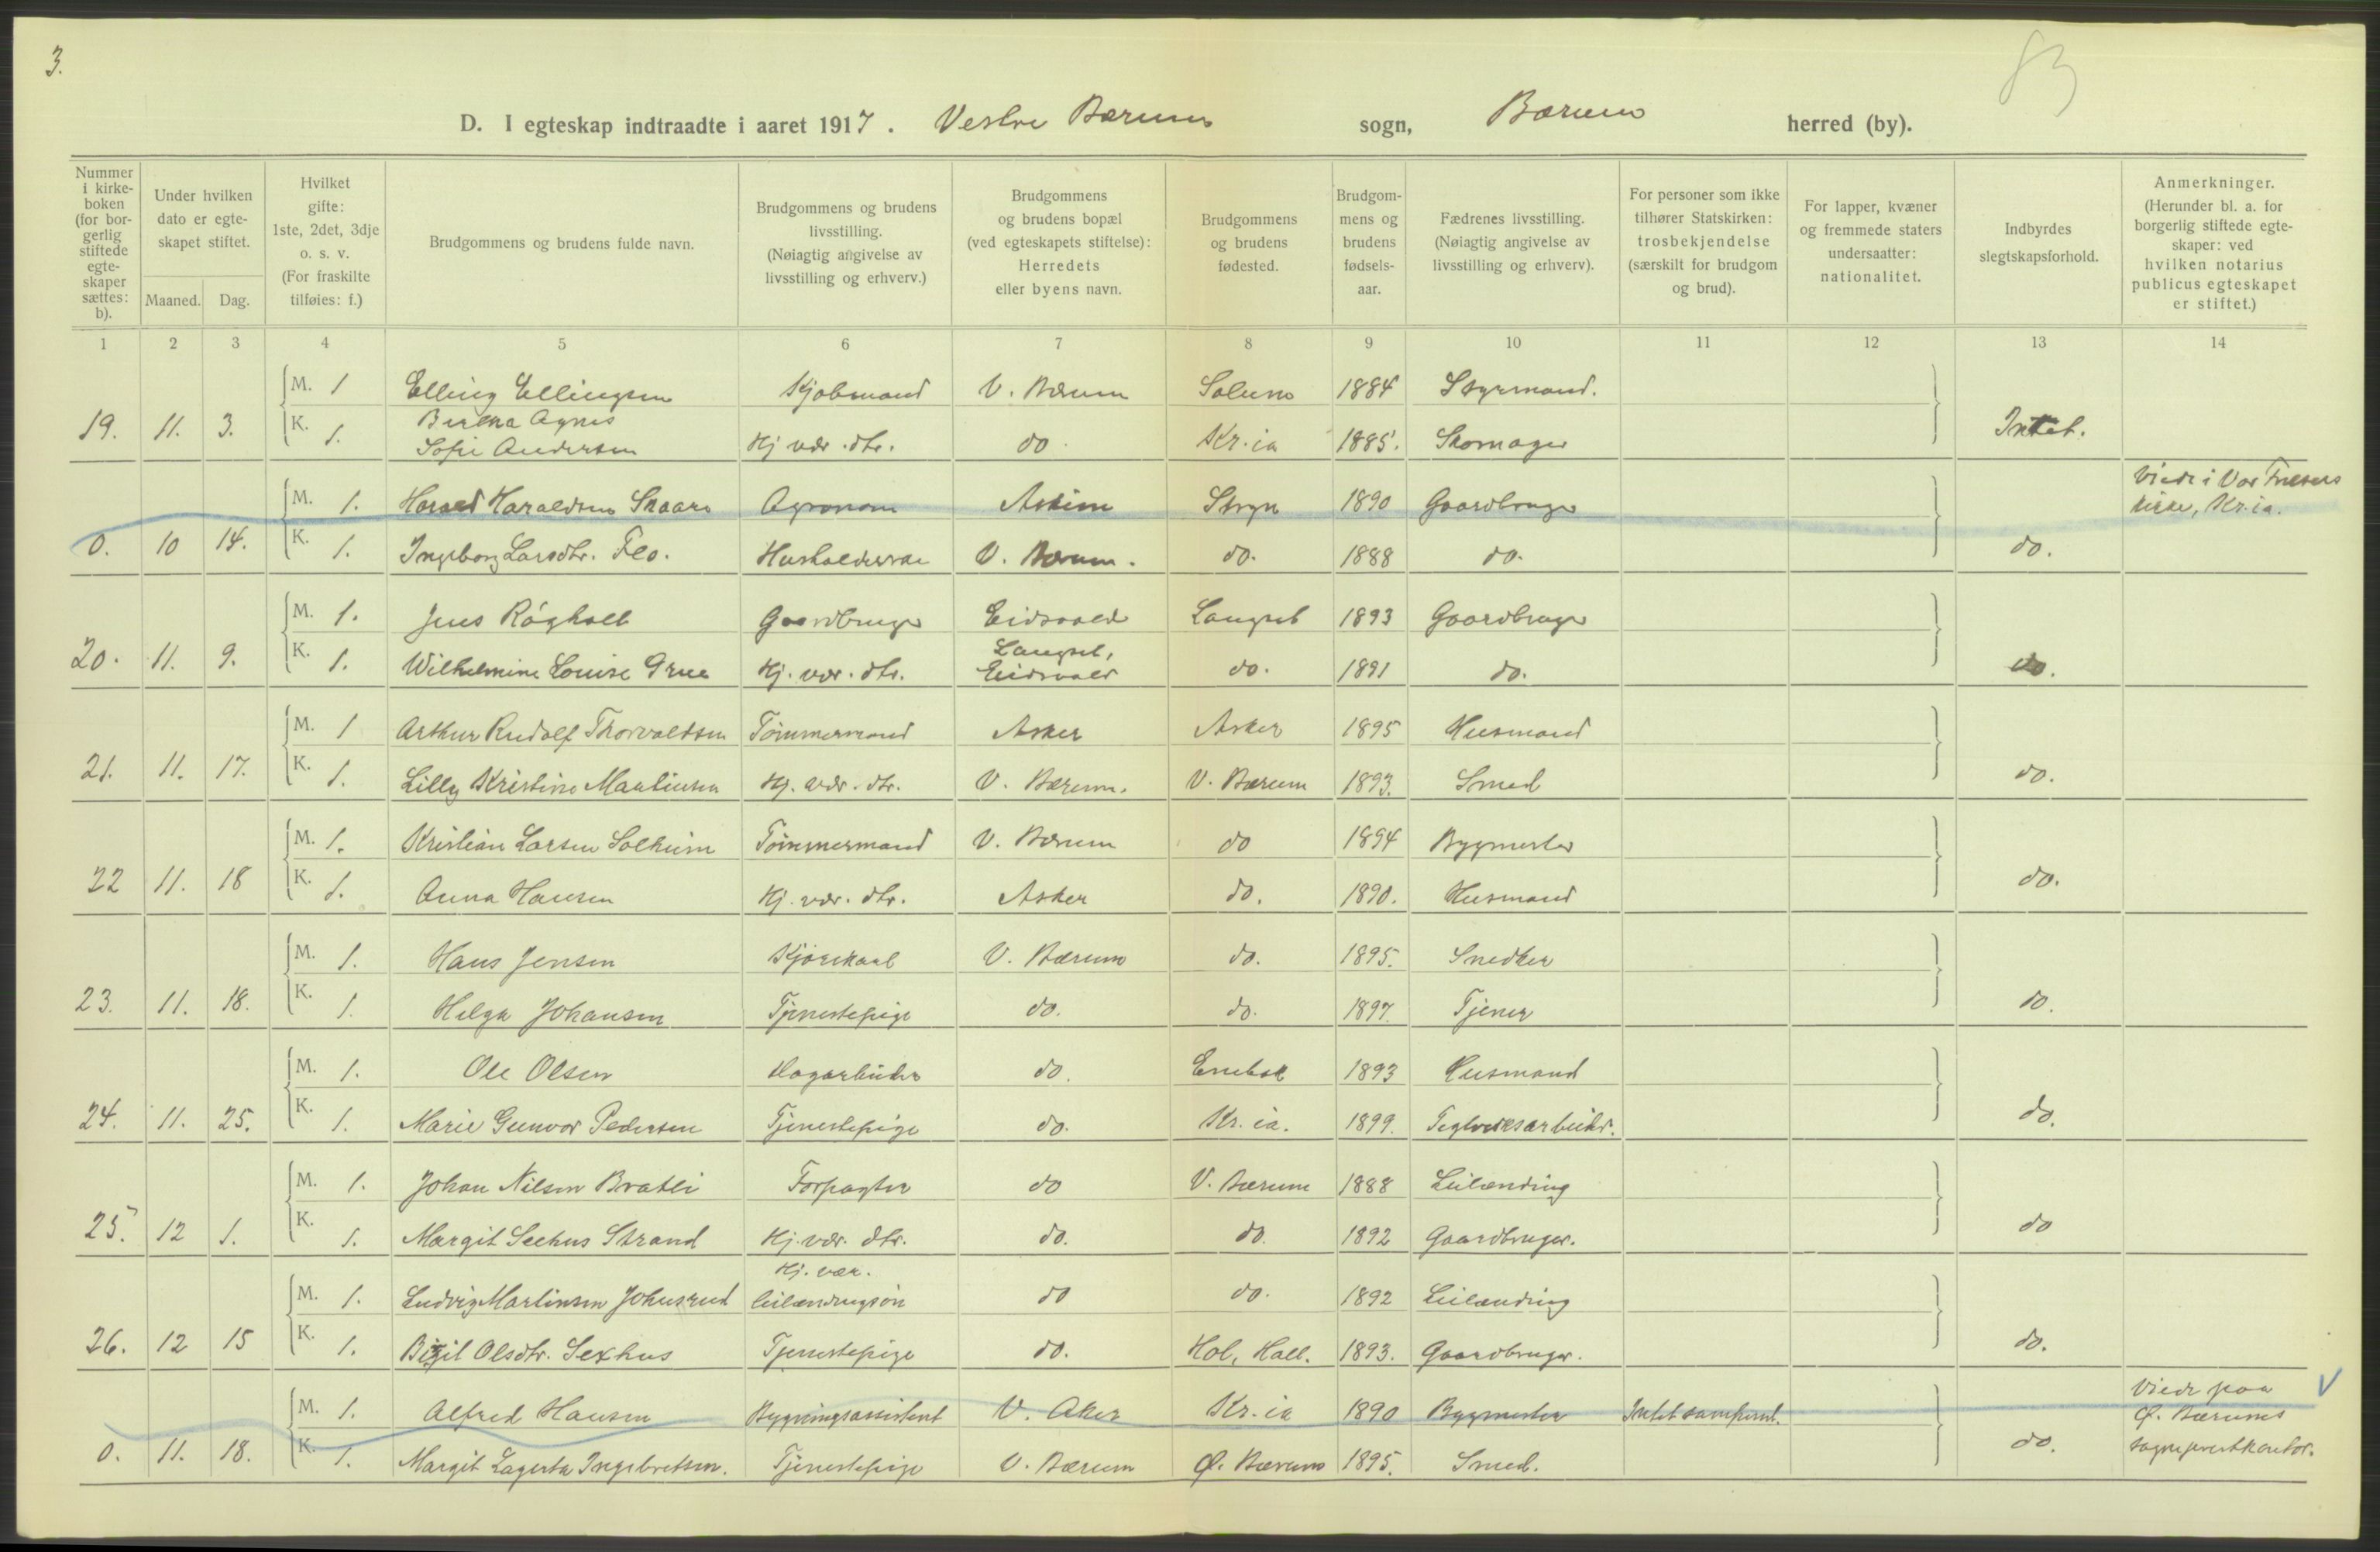 3.
83
D. I egteskap indtraadte i aaret 1917. Vestre Bærum sogn, Bærum herred (by).
Nummer i kirke-boken (for bor-gerlig stiftede egte-skaper sættes: b).
Under hvilken dato er egte-skapet stiftet.
Maaned. Dag.
Hvilket gifte: 1ste, 2det, 3dje o. s. v. (For fraskilte tilføies: f.)
Brudgommens og brudens fulde navn.
Brudgommens og brudens livsstilling. (Nøiagtig angivelse av livsstilling og erhverv.)
Brudgommens og brudens bopæl (ved egteskapets stiftelse): Herredets eller byens navn.
Brudgommens og brudens fødested.
Brudgom-mens og brudens fødsels-aar.
Fædrenes livsstilling. (Nøiagtig angivelse av livsstilling og erhverv).
For personer som ikke tilhører Statskirken: trosbekjendelse (særskilt for brudgom og brud).
For lapper, kvæner og fremmede staters undersaatter: nationalitet.
Indbyrdes slegtskapsforhold.
Anmerkninger. (Herunder bl. a. for borgerlig stiftede egte-skaper: ved hvilken notarius publicus egteskapet er stiftet.)
1 2 3 4 5 6 7 8 9 10 11 12 13 14
M. 1 Elling Ellingsen Kjøbmand V. Bærum Solum 1884 Styrmand.
Agnes
19. 11. 3. K. 1. Sofie Andersen Hj vær. dtr. do. Kr.ia 1885. Skomager Intet.
M. 1. Harald Haraldsen Skaare Agronom Askim Stryn 1890 Gaardbruger Viede i Vor Frelsers kirke, Kr.ia.
0. 10 14. K. 1. Ingeborg Larsdtr. Flo. Husholderske V. Bærum. do. 1888 do. do.
M. 1. Jens Røgholt Gaardbruger Eidsvold Langset 1893 Gaardbruger
20. 11. 9. K. 1. Wilhelmine Louise Grue Hj. vær. dtr. Langset, Eidsvold do. 1891 do. do.
M. 1 Arthur Rudolf Thorvaldsen Tømmermand Asker Asker 1895 Husmand
21. 11. 17. K. 1. Lilly Kristine Martinsen Hj. vær. dtr. V. Bærum. V. Bærum 1893. Smed do.
M. 1. Kristian Larsen Solheim Tømmermand V. Bærum do 1894 Bygmester
22 11. 18 K. 1. Anna Hansen Hj. vær. dtr. Asker do. 1890. Husmand do.
M. 1. Hans Jensen Kjørekarl V. Bærum do. 1895. Snedker
23. 11. 18. K. 1. Helga Johansen Tjenestepige do. do. 1897. Tjener do.
M. 1. Ole Olsen Dagarbeider do. Enebak 1893 Husmand
24. 11. 25. K. 1. Marie Gunvor Pedersen Tjenestepige do. Kr.ia. 1899. Teglverksarbeider. do.
M. 1. Johan Nilsen Bratli Forpagter do V. Bærum 1888 Leilænding
25. 12 1. K. 1. Margit Seehus Strand Hj. vær. dtr. do. do. 1892 Gaardbruger. do
M. 1. Ludvig Martinsen Johnsrud Hj. vær. leilændingsøn do do. 1892 Leilænding
26. 12 15 K. 1. Olsdtr. Sexhus Tjenestepige do. Hol, Hall. 1893. Gaardbruger. do.
M. 1. Alfred Hansen Bygningsassistent V. Aker Kr.ia 1890 Bygmester Intet samfund. Viede paa Ø. Bærums sogneprestkontor. V
0. 11. 18. K. 1. Margit Lagerta Ingebretsen. Tjenestepige V. Bærum Ø. Bærum 1895. Smed. do.